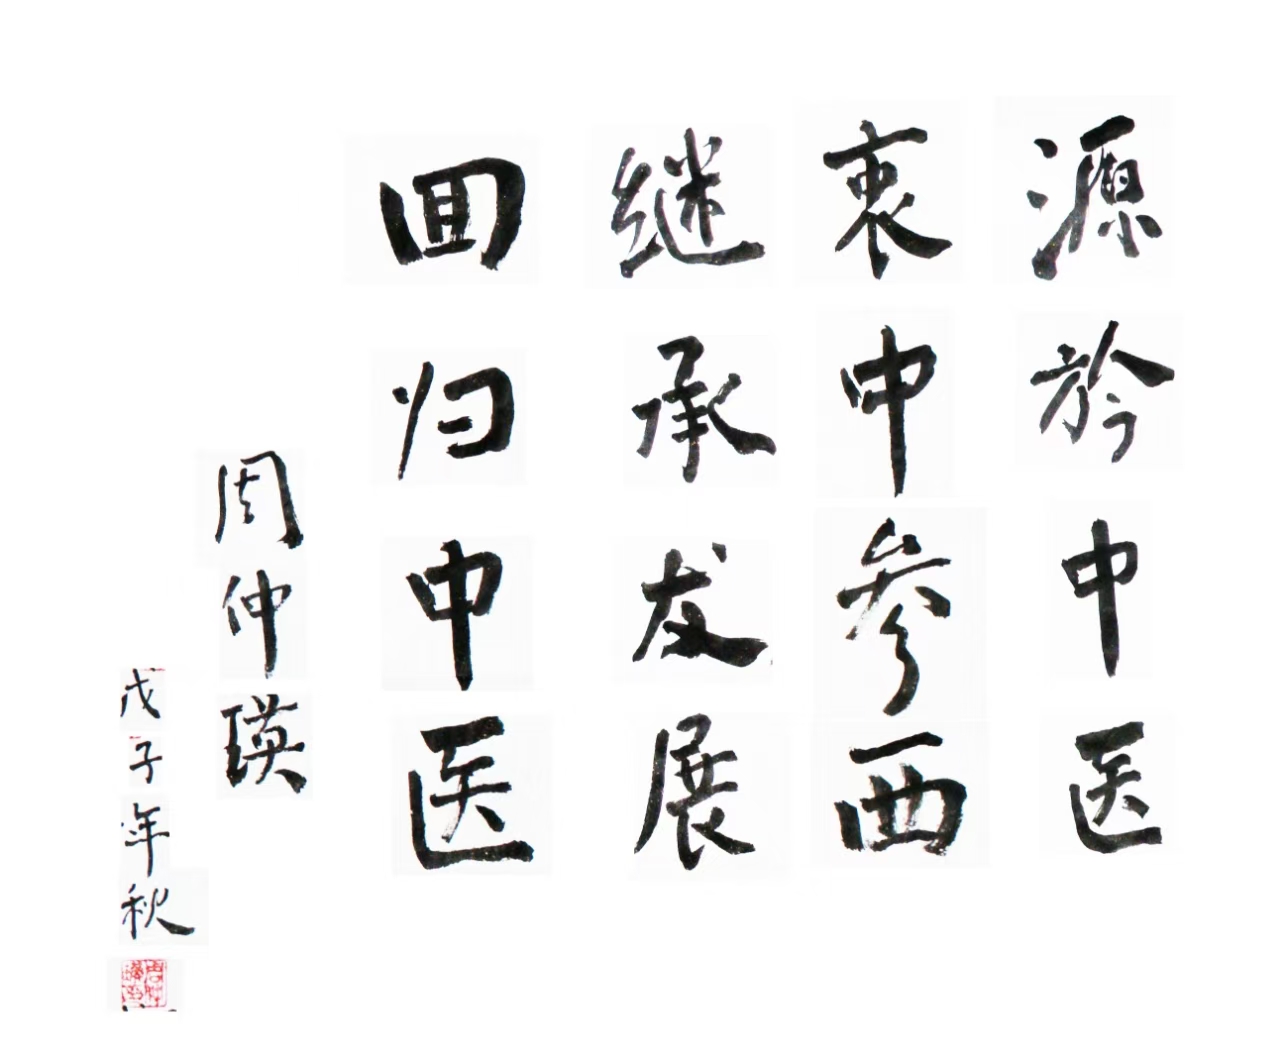 源於中医
衷中参西
继承发展
回归中医
周仲瑛
戊子年秋